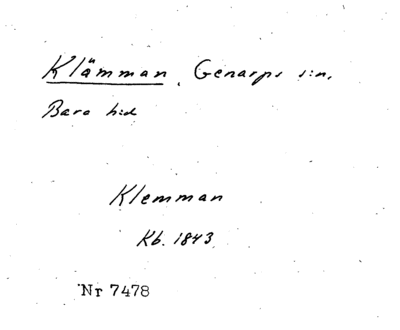 Klämman, Genarps s:n,
Bara hd
Klemman
Kb. 1843
Nr 7478